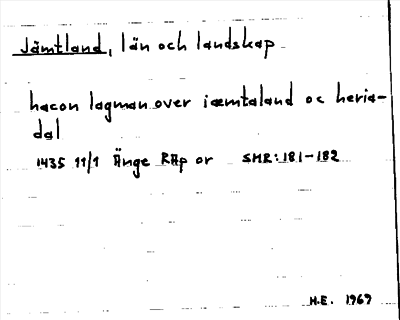 Jämtland, län och landskap
hacon lagman over iæmtaland oc heria-
dal
1435 11/1 Änge RAp or SMR:181-182
H.E. 1969